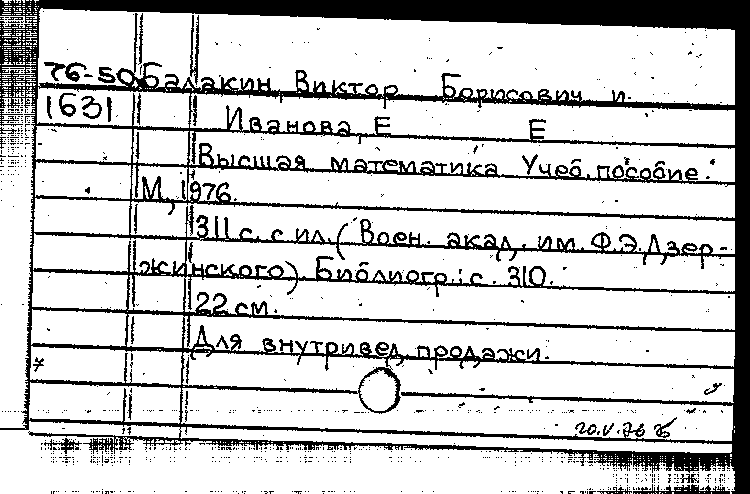 76-50 Балакин, Виктор Борисович и
1631 Иванова, Е Е
Высшая математика Учеб. пособие.
М, 1976.
311 с. с ил. (Воен. акад. им. Ф.Э. Дзер-
жинского). Библиогр.: с. 310.
22 см.
Для внутривед. продажи.
20.V.76